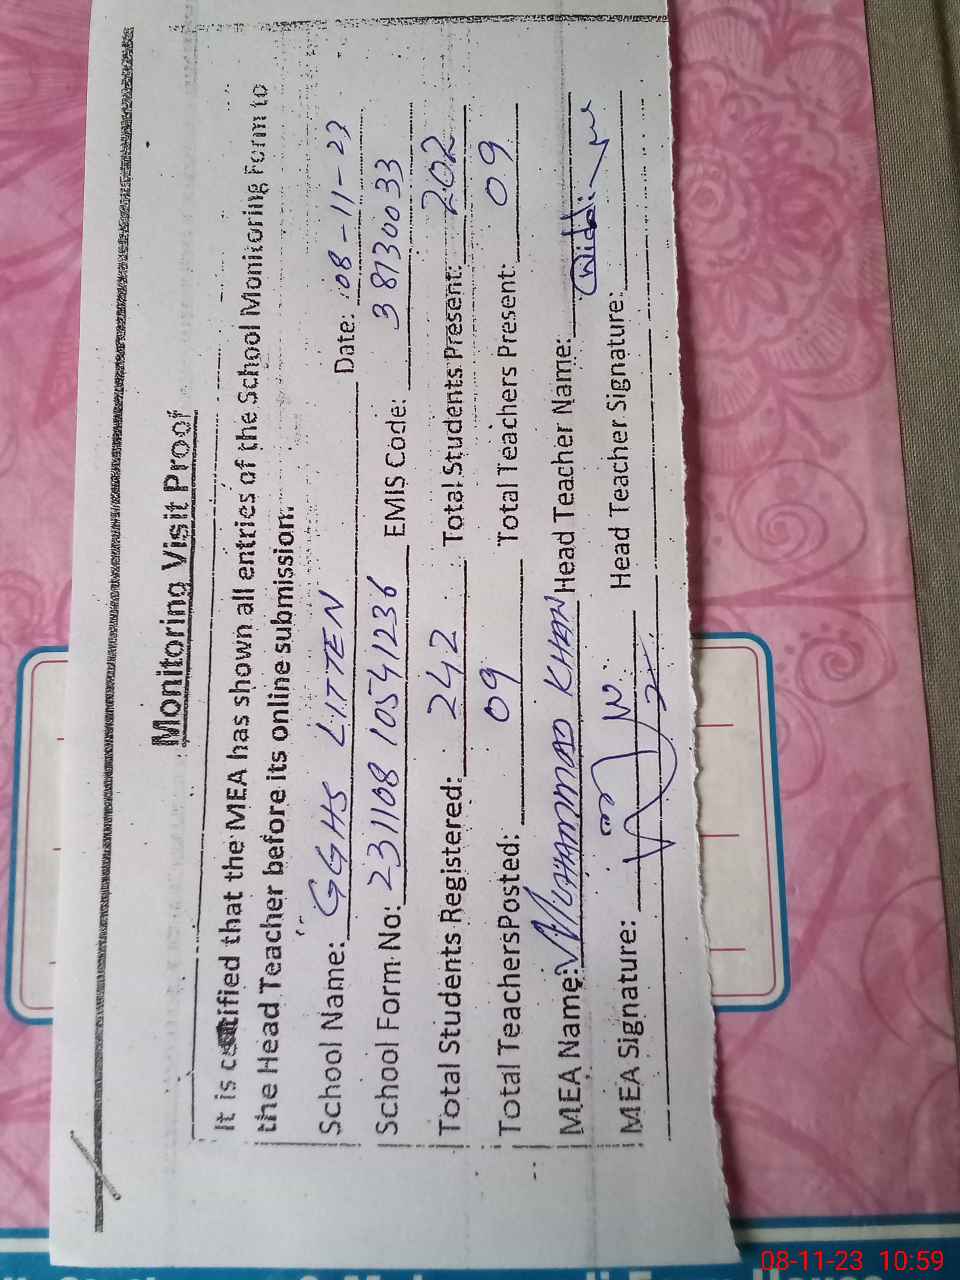 Monitoring Visit Proof
It is certified that the MEA has shown all entries of the School Monitoring Form to
the Head Teacher before its online submission.
School Name: GGHS LITTEN Date: 08-11-23
School Form No: 231108 10541236 EMIS Code: 38130033
Total Students Registered: 242 Total Students Present: 202
Total TeachersPosted: 09 Total Teachers Present: 09
MEA Name: KHAN Head Teacher Name:
MEA Signature: Head Teacher Signature:
08-11-23 10:59